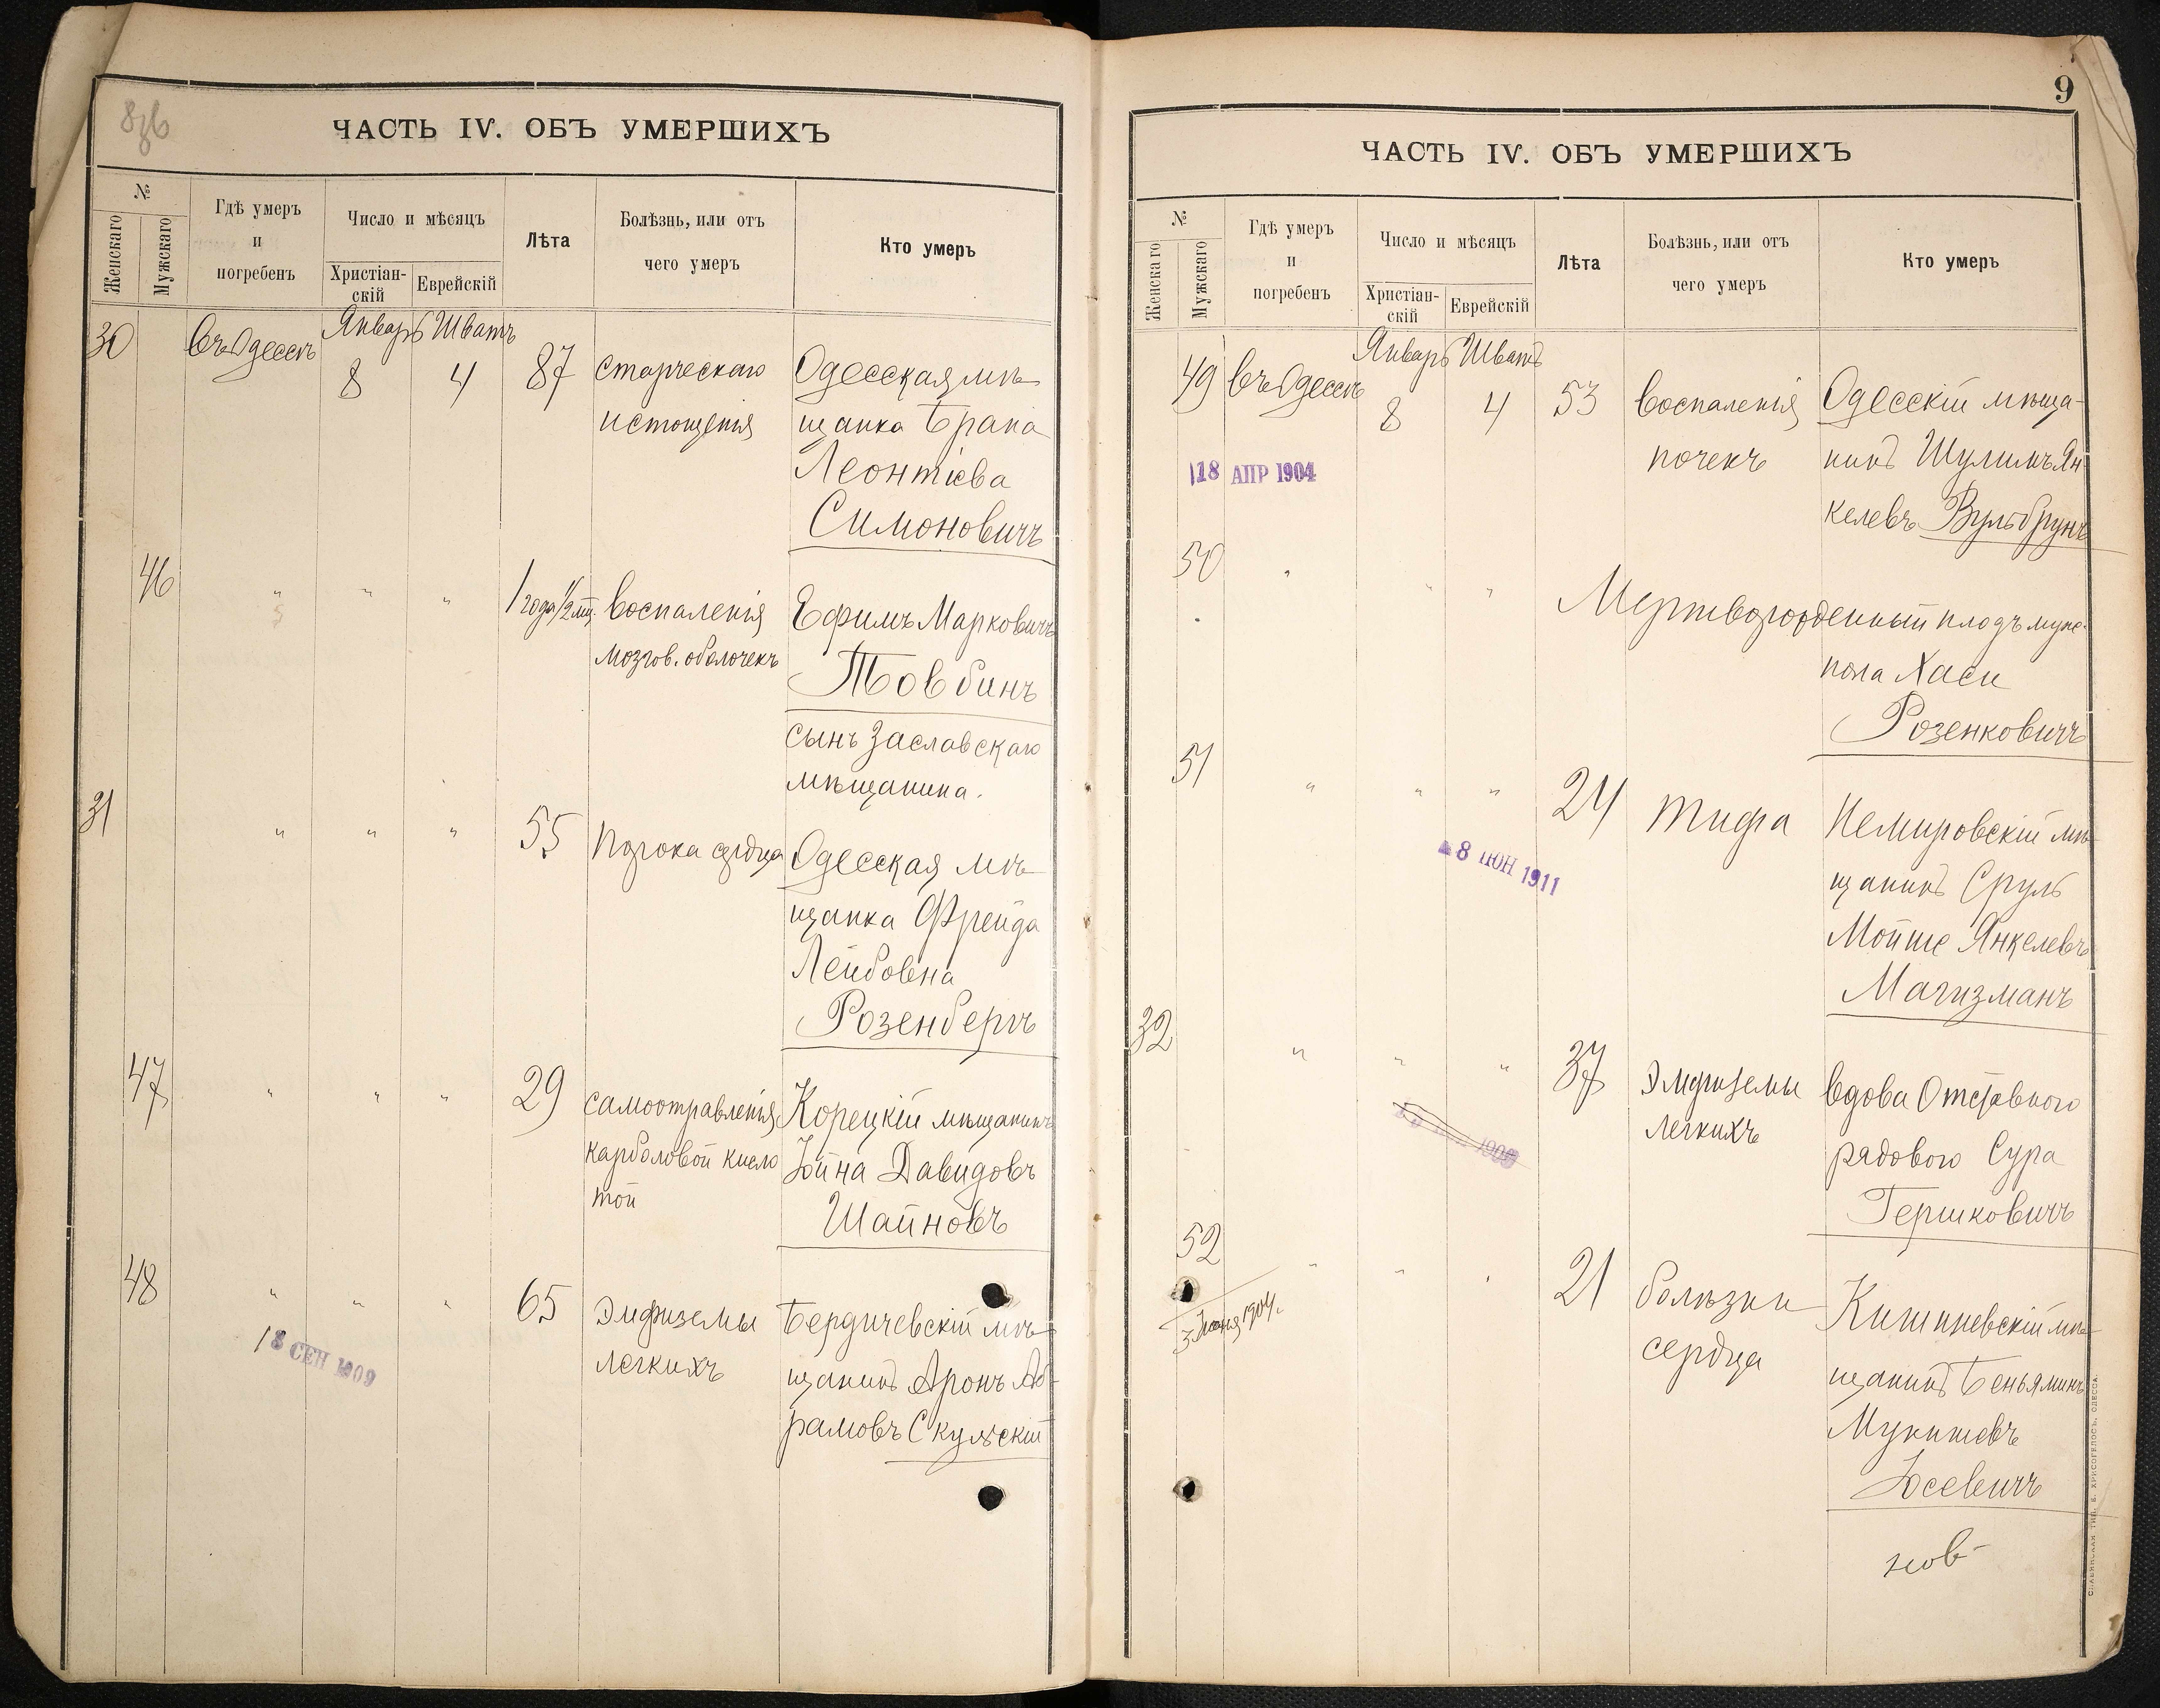 8об
ЧАСТЬ IV. ОБЪ УМЕРШИХЪ
№
Женскаго
Мужскаго
Гдѣ умеръ
и
погребенъ
Число и мѣсяцъ
Христіан-
скій
Еврейскій
Лѣта
Болѣзнь, или отъ
чего умеръ
Кто умеръ
30 въ Одессѣ Январь Шватъ
8 4 87 старческаго Одесская мѣ-
истощенія щанка Брана
Леонтіева
Симоновичъ
46 " " " 1 года 1/2 мц. воспаленія Ефимъ Марковичъ
мозгов. оболочекъ Товбинъ
сынъ Заславскаго
мѣщанина.
31 " " " 55 порока сердца Одесская мѣ-
щанка Фрейда
Лейбовна
Розенбергъ
47 " " " 29 самоотравленія Корецкій мѣщанинъ
карболовой кисло Іойна Давидовъ
той Шайновъ
48 " " " 65 эмфиземы Бердичевскій мѣ-
легкихъ щанинъ Аронъ Аб-
рамовъ Скульскій
18 СЕН 1909
9
ЧАСТЬ IV. ОБЪ УМЕРШИХЪ
№
Женскаго
Мужскаго
Гдѣ умеръ
и
погребенъ
Число и мѣсяцъ
Христіан-
скій
Еврейскій
Лѣта
Болѣзнь, или отъ
чего умеръ
Кто умеръ
49 въ Одессѣ Январь Шватъ
8 4 53 воспаленія Одесскій мѣща-
почекъ нинъ Шулимъ Ян
келевъ Вульбрунъ
18 АПР 1904
50 " " " Мертворожденный плодъ мужс.
пола Хаси
Розенковичъ
51 " " " 24 тифа Немировскій мѣ-
щанинъ Сруль
Мойше Янкелевъ
Магизманъ
8 ІЮН 1911
32 " " " 37 эмфиземы вдова Отставного
легкихъ рядового Сура
Гершковичъ
52 " " " 21 болѣзни Кишиневскій мѣ-
сердца щанинъ Беньяминъ
Іосевичъ
3 Іюня 1904.
нов-
СЛАВЯНСКАЯ ТИП. Е. ХРИСОГЕЛОСЪ, ОДЕССА.